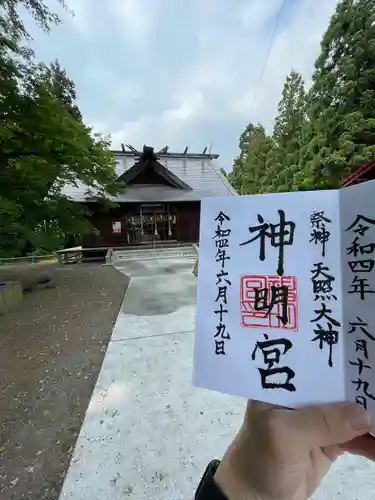 令和四年
六月十九日
祭神 天照大神
神明宮
令和四年六月十九日